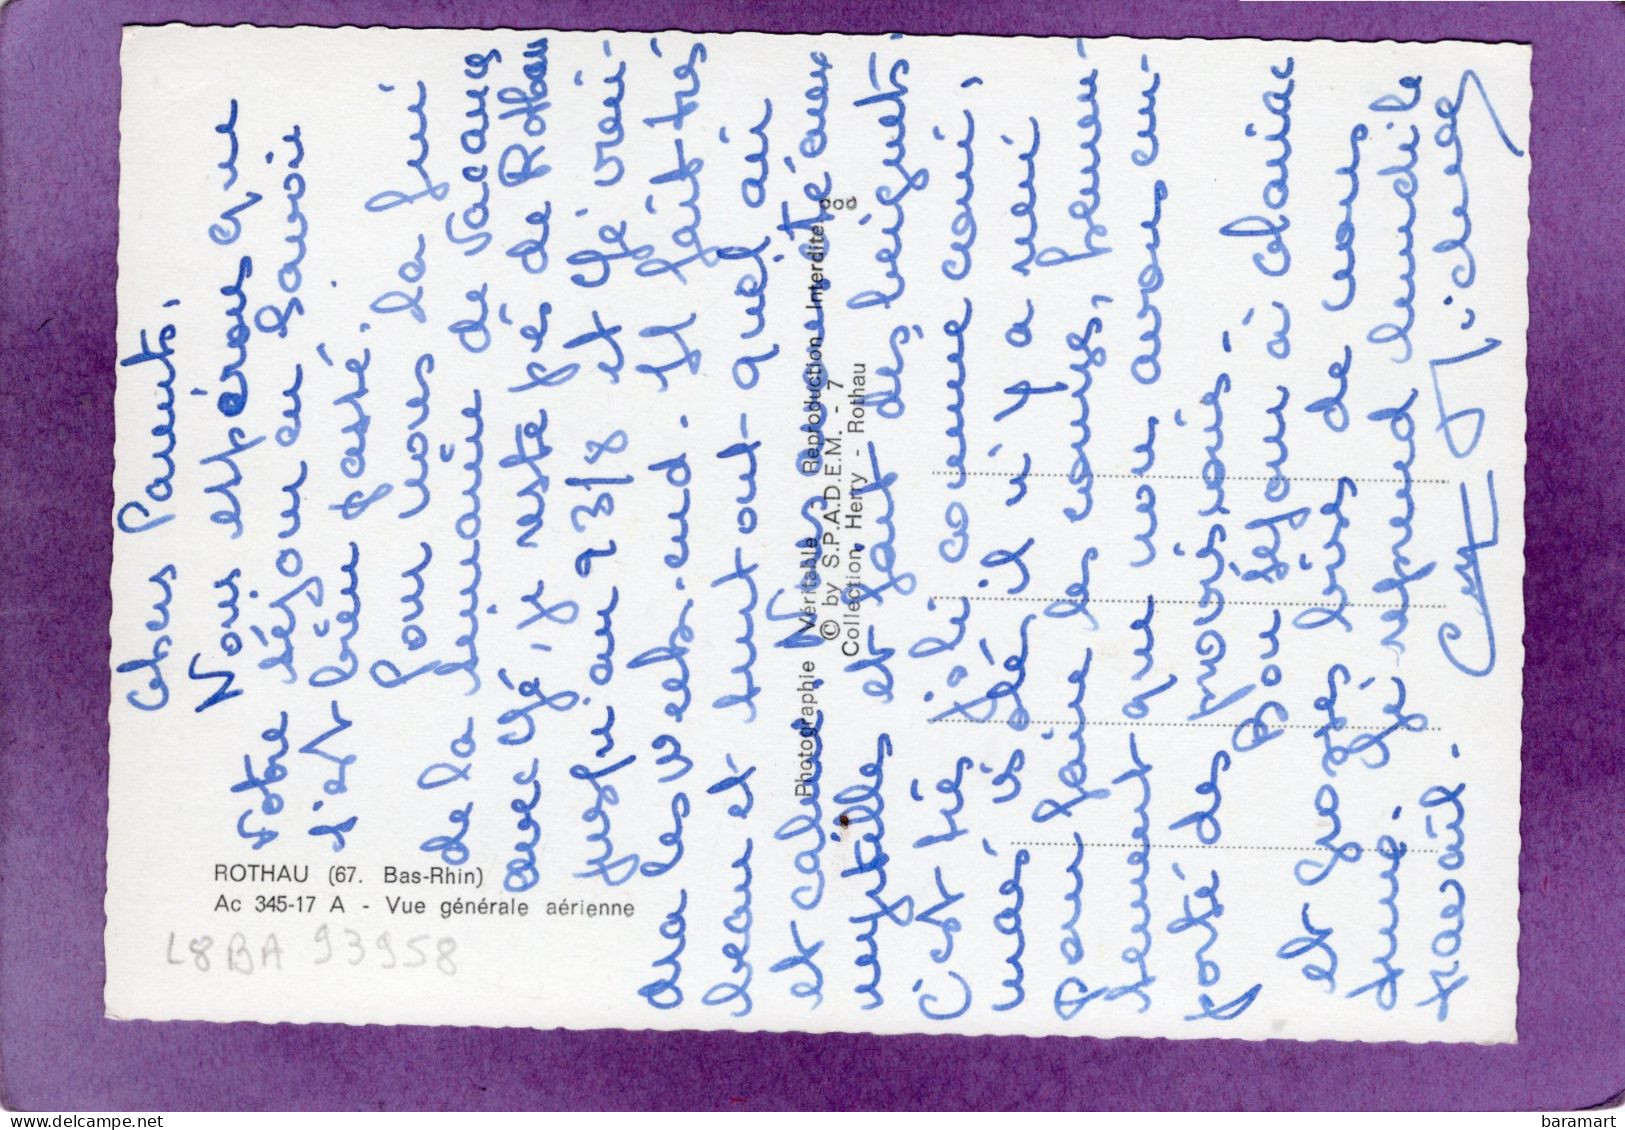 Chers Parents,
Nous espérons que
votre séjour en Savoie
s'est bien passé.
Pour nous la fin
de la semaine de vacances
avec Gé, je reste près de Rothau
jusqu'au 23/8 et Gé vien-
dra les week-end. Il fait très
beau et tout tout quel air
et calme. Nous
myrtilles et fait des beignets.
C'est très joli comme coin,
mais il n'y a rien
pour faire les courses, heureu-
sement que nous avons em-
porté des provisions.
Bon séjour à
et grosses bises de nous
Gé reprend lundi le
travail.
Photographie Véritable - Reproduction Interdite
© by S.P.A.D.E.M. - 7
Collection Herry - Rothau
ROTHAU (67. Bas-Rhin)
Ac 345-17 A - Vue générale aérienne
L8BA 93958
delcampe.net
baramart